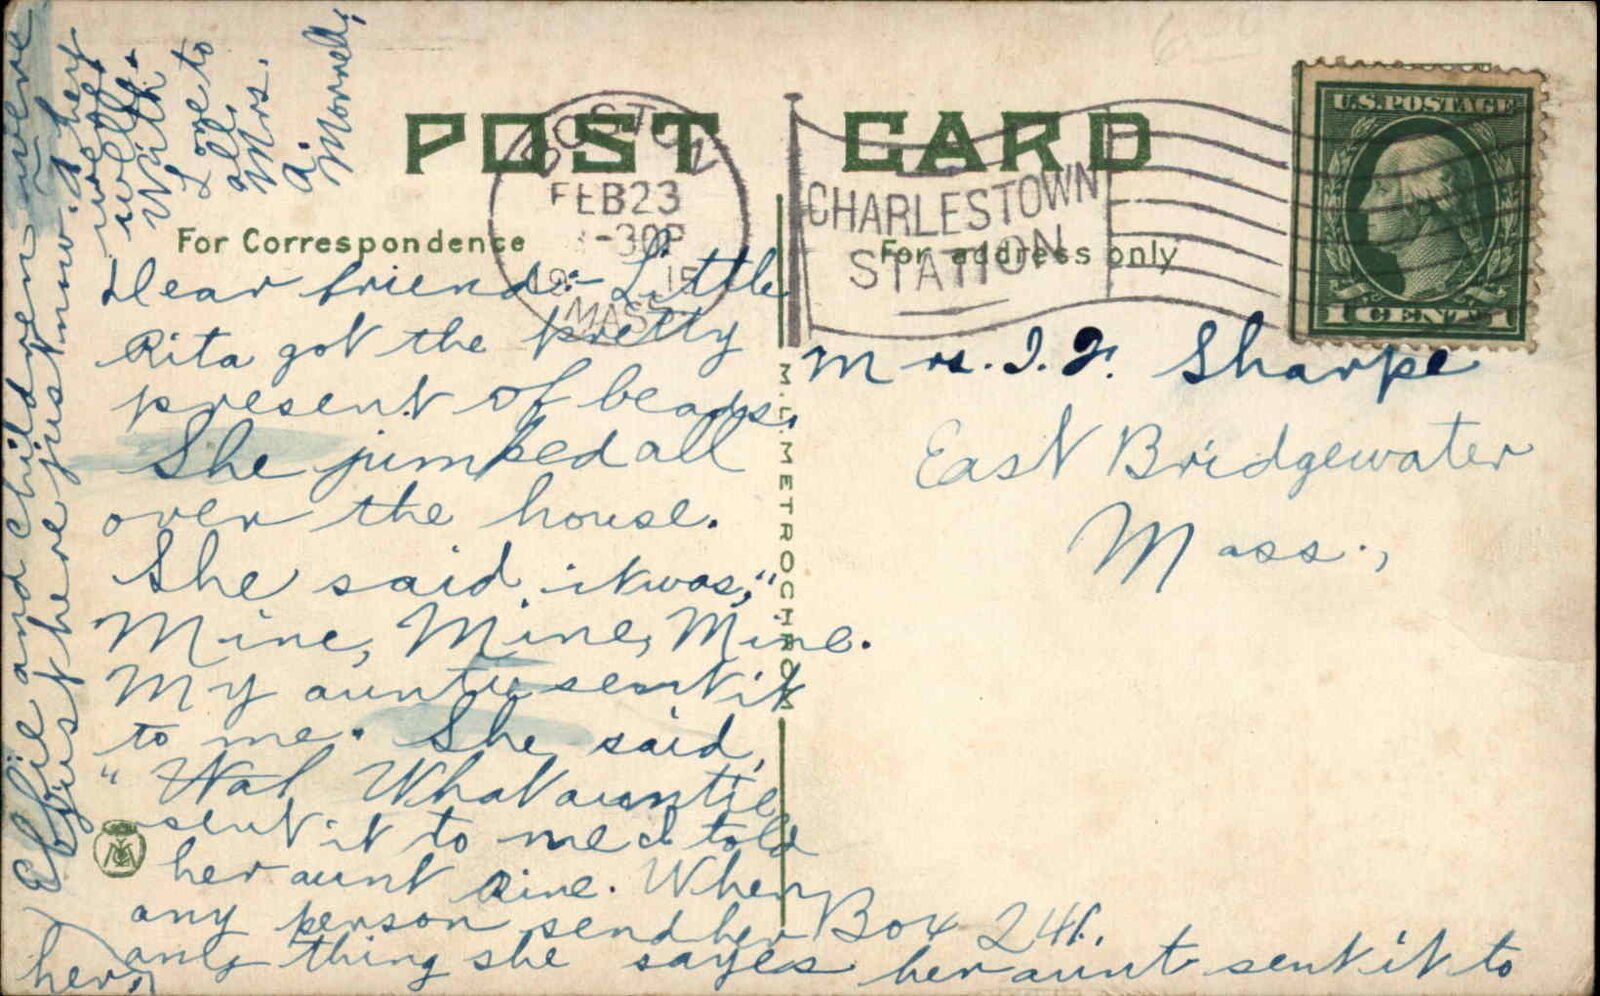 POST CARD
For Correspondence
For address only
BOSTON
FEB 23
-30P
1915
MASS
CHARLESTOWN
STATION
U.S. POSTAGE
1 CENT 1
M.L. METROCHROM
Dear friend:- Little
Rita got the pretty
present of beads.
She jumped all
over the house.
She said it was, "
Mine, Mine, Mine.
My auntie sent it
to me. She said,
" What auntie
sent it to me I told
her aunt Rine. When
any person send her
any thing she sayes her aunt sent it to
her.
Effie and children were
just here just now. They
were
well.
With
Love to
all.
Mrs.
A.
Morrell,
Mrs. I. F. Sharpe
East Bridgewater
Mass.,
Box 241.